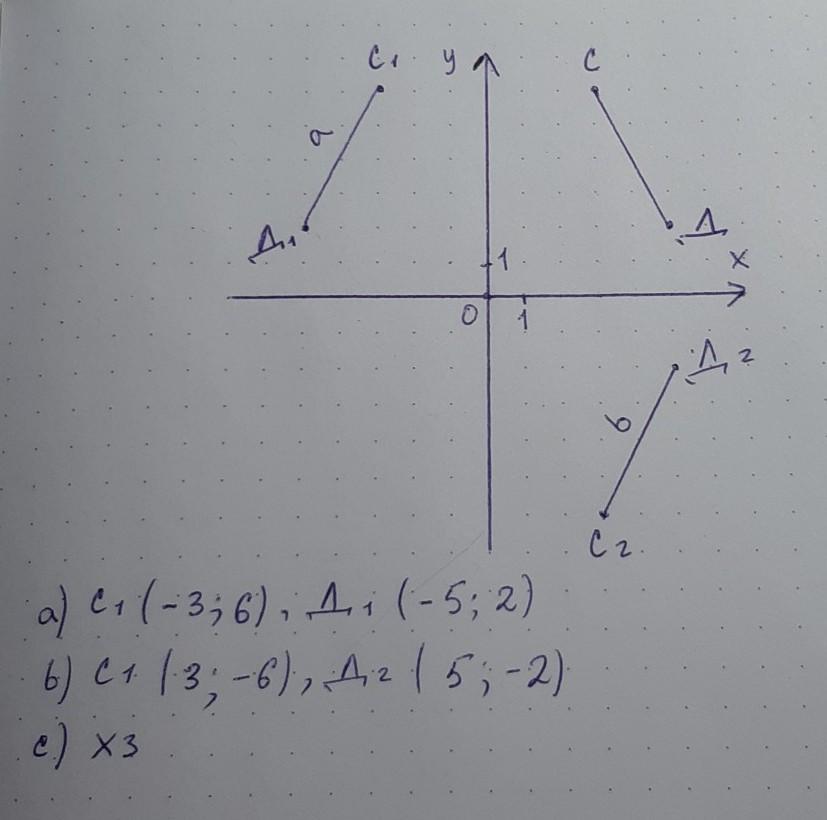 C1 y C
a
Д1 Д
1 x
0 1
Д2
b
C2
a) C1 (-3; 6), Д1 (-5; 2)
b) C1 (3; -6), Д2 (5; -2)
c) x3